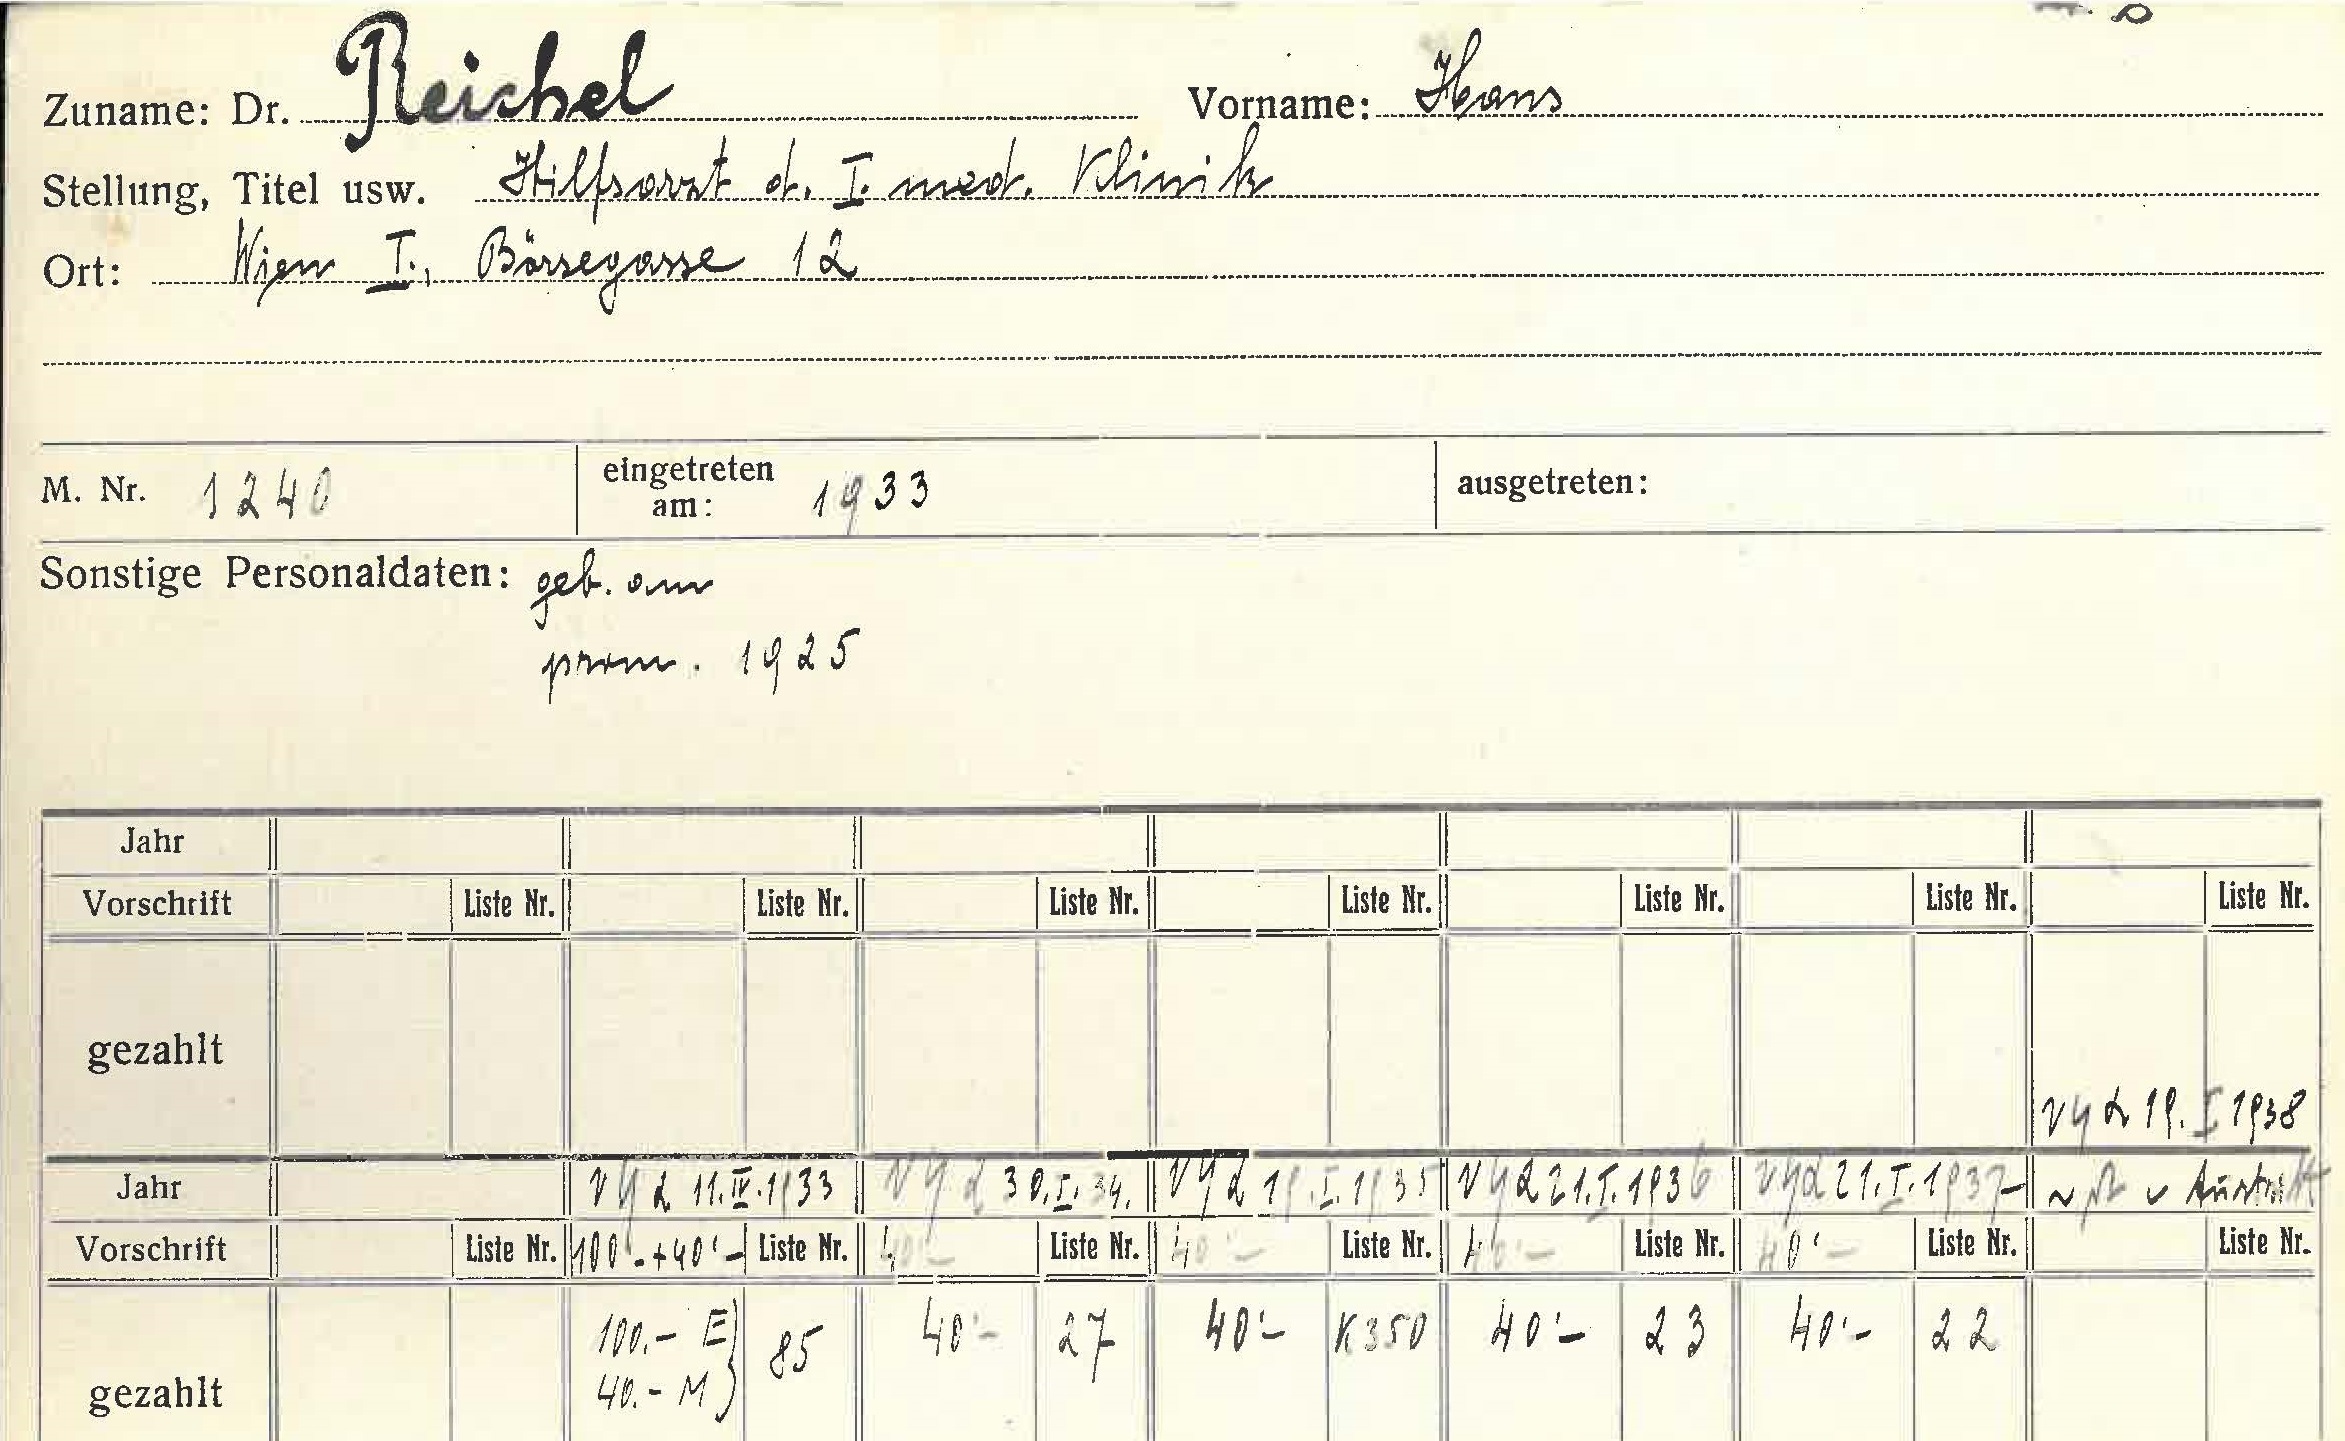 Zuname: Dr. Reichel Vorname: Hans
Stellung, Titel usw. Hilfsarzt d. I. med. Klinik
Ort: Wien I., Börsegasse 12
M. Nr. 1240 eingetreten am: 1933 ausgetreten:
Sonstige Personaldaten: geb. am
prom. 1925
Jahr
Vorschrift Liste Nr. Liste Nr. Liste Nr. Liste Nr. Liste Nr. Liste Nr. Liste Nr.
gezahlt
19. I 1938
Jahr 11. IV. 1933 30. I. 34. 19. I. 1935 21. I. 1936 21. I. 1937
Vorschrift Liste Nr. 100.- + 40'- Liste Nr. 40'- Liste Nr. 40'- Liste Nr. 40'- Liste Nr. 40'- Liste Nr. Liste Nr.
100.- E } 85 40'- 27 40'- K350 40'- 23 40'- 22
40.- M
gezahlt